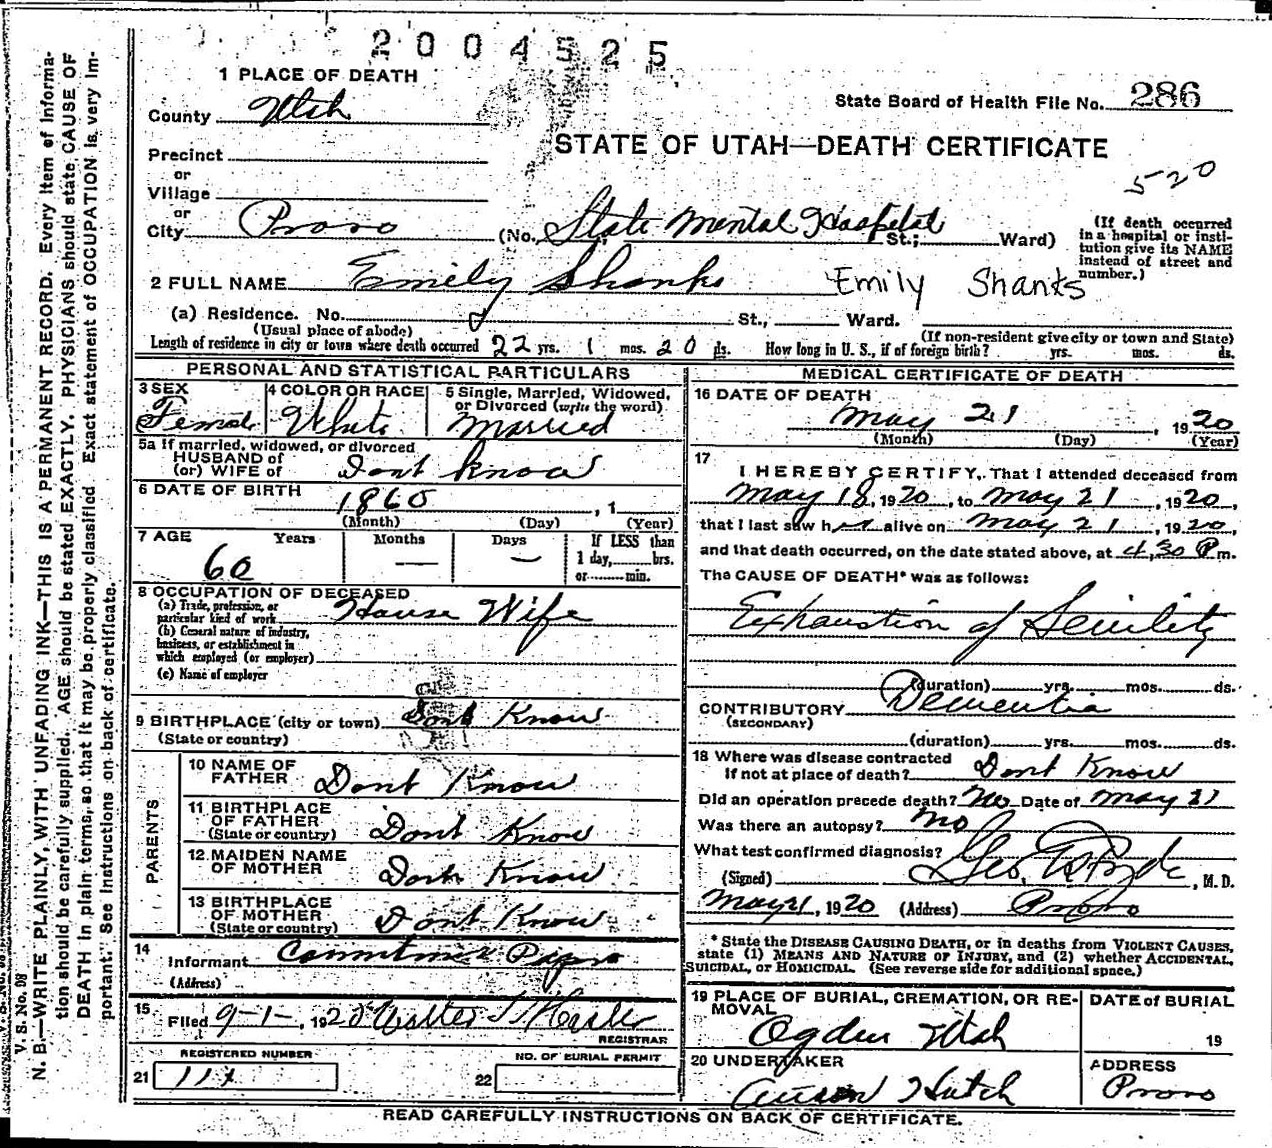 2004525
1 PLACE OF DEATH
State Board of Health File No. 286
County Utah
STATE OF UTAH—DEATH CERTIFICATE
Precinct
or
520
Village
or
City Provo (No. State Mental Hospital St.; Ward)
(If death occurred in a hospital or institution give its NAME instead of street and number.)
2 FULL NAME Emily Shanks Emily Shanks
(a) Residence. No. St., Ward.
(Usual place of abode) (If non-resident give city or town and State)
Length of residence in city or town where death occurred 22 yrs. 1 mos. 20 ds. How long in U. S., if of foreign birth? yrs. mos. ds.
PERSONAL AND STATISTICAL PARTICULARS
3 SEX 4 COLOR OR RACE 5 Single, Married, Widowed, or Divorced (write the word)
Female White Married
5a If married, widowed, or divorced
HUSBAND of
(or) WIFE of Dont know
6 DATE OF BIRTH
1860 , 1
(Month) (Day) (Year)
7 AGE Years Months Days If LESS than
60 — — 1 day, hrs.
or min.
8 OCCUPATION OF DECEASED
(a) Trade, profession, or
particular kind of work House Wife
(b) General nature of industry,
business, or establishment in
which employed (or employer)
(c) Name of employer
9 BIRTHPLACE (city or town) Dont Know
(State or country)
PARENTS
10 NAME OF
FATHER Dont Know
11 BIRTHPLACE
OF FATHER
(State or country) Dont Know
12 MAIDEN NAME
OF MOTHER Dont Know
13 BIRTHPLACE
OF MOTHER
(State or country) Dont Know
14
Informant Commitment Papers
(Address)
15
Filed 9-1-, 192 Walter T
REGISTRAR
REGISTERED NUMBER NO. OF BURIAL PERMIT
21 22
MEDICAL CERTIFICATE OF DEATH
16 DATE OF DEATH
May 21 , 1920
(Month) (Day) (Year)
17
I HEREBY CERTIFY, That I attended deceased from
May 18, 1920, to May 21, 1920,
that I last saw her alive on May 21, 1920,
and that death occurred, on the date stated above, at 4,30 P m.
The CAUSE OF DEATH* was as follows:
Exhaustion of Senility
(duration) yrs. mos. ds.
CONTRIBUTORY Dementia
(SECONDARY)
(duration) yrs. mos. ds.
18 Where was disease contracted
if not at place of death? Dont Know
Did an operation precede death? No Date of May 21
Was there an autopsy? No
What test confirmed diagnosis?
(Signed) Geo. E. Hyde, M.D.
May 21, 1920 (Address) Provo
* State the DISEASE CAUSING DEATH, or in deaths from VIOLENT CAUSES,
state (1) MEANS AND NATURE OF INJURY, and (2) whether ACCIDENTAL,
SUICIDAL, or HOMICIDAL. (See reverse side for additional space.)
19 PLACE OF BURIAL, CREMATION, OR RE-
MOVAL
DATE OF BURIAL
Ogden Utah
19
20 UNDERTAKER ADDRESS
Hatch Provo
READ CAREFULLY INSTRUCTIONS ON BACK OF CERTIFICATE.
V. S. No. 98
N. B.—WRITE PLAINLY, WITH UNFADING INK—THIS IS A PERMANENT RECORD. Every item of informa-
tion should be carefully supplied. AGE should be stated EXACTLY. PHYSICIANS should state CAUSE OF
DEATH in plain terms, so that it may be properly classified. Exact statement of OCCUPATION is very im-
portant. See instructions on back of certificate.